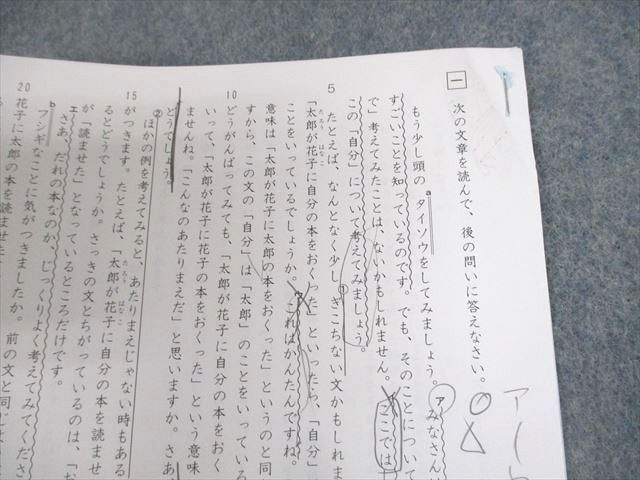 一 次の文章を読んで、後の問いに答えなさい。
もう少し頭のaタイソウをしてみましょう。アみなさんは
すごいことを知っているのです。でも、そのことについて
で」考えてみたことは、ないかもしれません。イここでは
この「自分」について考えてみましょう。
5
たとえば、なんとなく少し①ぎこちない文かもしれま
「太郎が花子に自分の本をおくった」といったら、「自分」は
たろう はなこ
ことをいっているでしょうか。ウこれはかんたんですね。
意味は「太郎が花子に太郎の本をおくった」というのと同
すから、この文の「自分」は「太郎」のことをいっている
10
どうがんばってみても、「太郎が花子に自分の本をおく
いって、「太郎が花子に花子の本をおくった」という意味
ませんね。「こんなのあたりまえだ」と思いますか。さあ
どうでしょう。
②ほかの例を考えてみると、あたりまえじゃない時もある
15
がつきます。たとえば、「太郎が花子に自分の本を読ませ
たろう はなこ
るとどうでしょうか。さっきの文とちがっているのは、「お
が「読ませた」となっているところだけです。
エさあ、だれの本なのか、じっくりよく考えてみてくださ
bフシギなことに気がつきましたか。前の文と同じよ
20
花子に太郎の本を読ませた